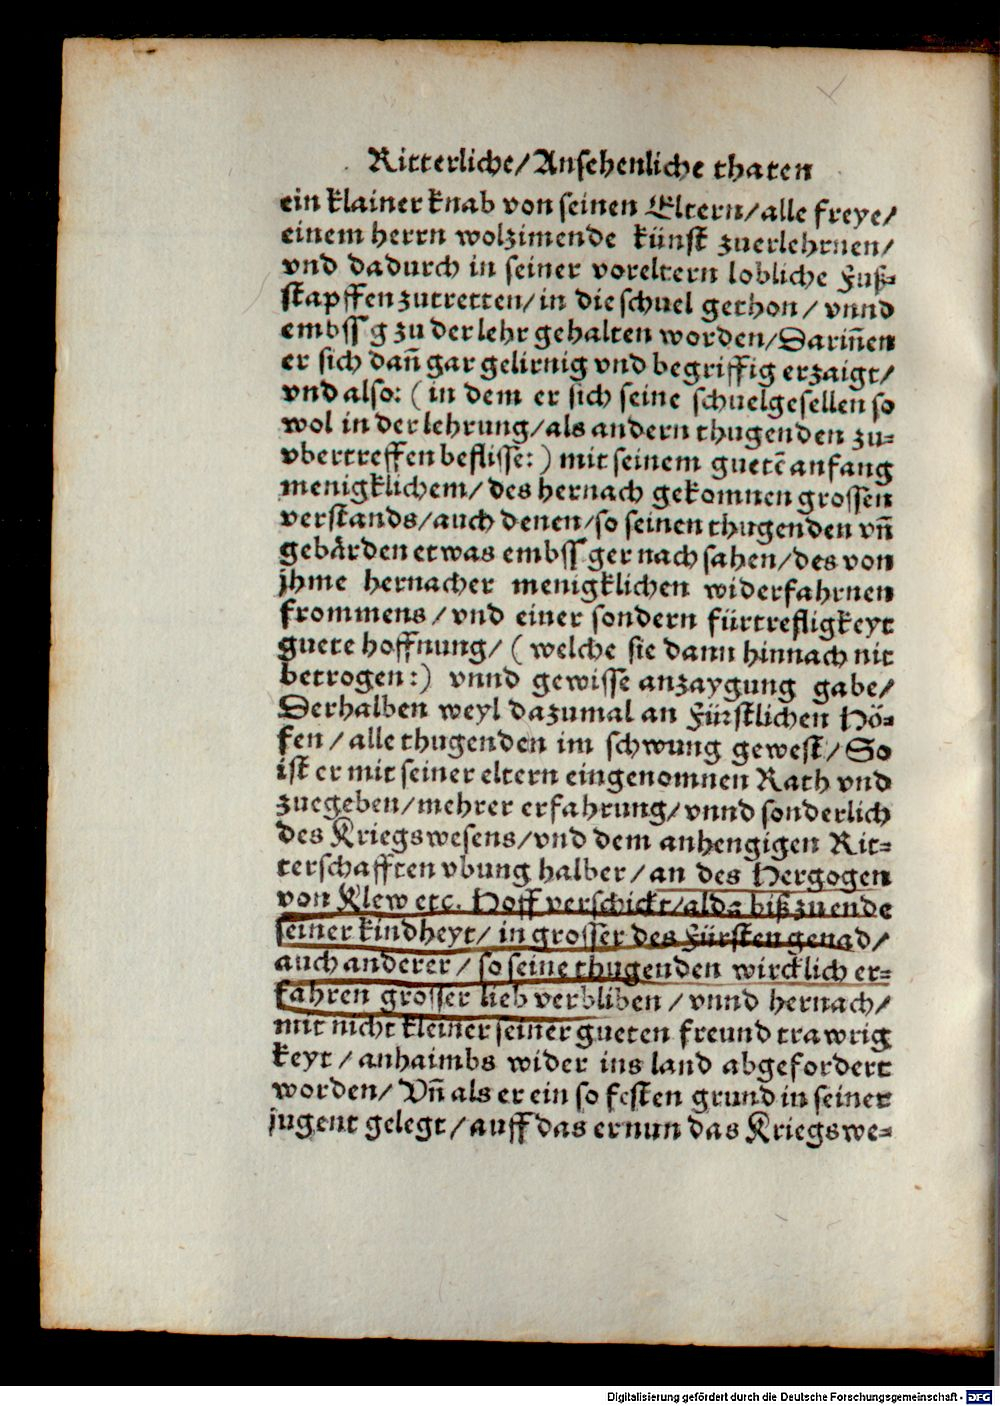 Ritterliche/Ansehenliche thaten
ein klainer knab von seinen Eltern/alle freye/
einem herrn wolzimende künst zuerlehrnen/
vnd dadurch in seiner voreltern lobliche Fuß-
stapffen zutretten/in die schuel gethon/ vnnd
embssig zu der lehr gehalten worden/Darin̄en
er sich dan̄ gar gelirnig vnd begriffig erzaigt/
vnd also: (in dem er sich seine schuelgesellen so
wol in der lehrung/als andern thugenden zu-
vbertreffen beflissē:) mit seinem guetē anfang
menigklichem/ des hernach gekomnen grossen
verstands/auch denen/so seinen thugenden vn̄
gebärden etwas embssiger nach sahen/des von
jhme hernacher menigklichen widerfahrnen
frommens/ vnd einer sondern fürtrefligkeyt
guete hoffnung/ (welche sie dann hinnach nit
betrogen:) vnnd gewisse anzaygung gabe/
Derhalben weyl dazumal an Fürstlichen Hö-
fen/ alle thugenden im schwung gewest/ So
ist er mit seiner eltern eingenomnen Rath vnd
zuegeben/mehrer erfahrung/vnnd sonderlich
des Kriegswesens/vnd dem anhengigen Rit-
terschafften vbung halber/an des Hergogen
von Klew etc. Hoff verschickt/alda biß zu ende
seiner kindheyt/ in grosser des Fürsten genad/
auch anderer/ so seine thugenden wircklich er-
fahren grosser lieb verbliben/ vnnd hernach/
mit nicht kleiner seiner gueten freund trawrig
keyt/ anhaimbs wider ins land abgefordert
worden/ Vn̄ als er ein so festen grund in seiner
jugent gelegt/auff das er nun das Kriegswe-
Digitalisierung gefördert durch die Deutsche Forschungsgemeinschaft - DFG